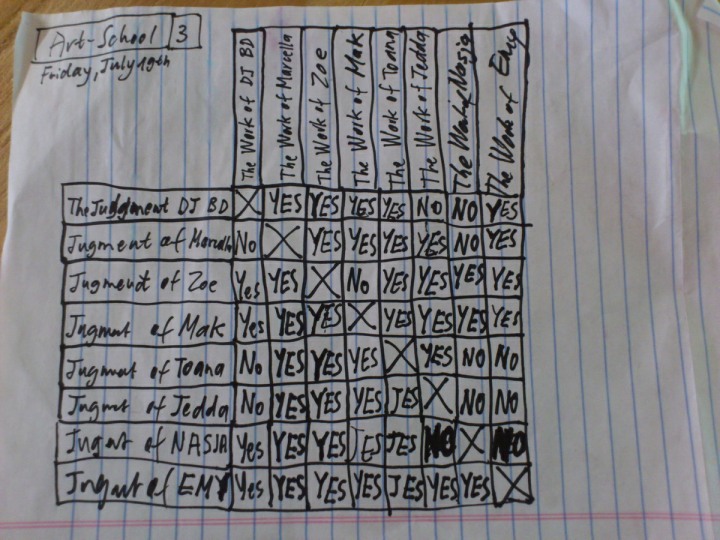 Art-School 3
Friday, July 19th
The Work of DJ BD
The Work of Marcella
The Work of Zoe
The Work of Mak
The Work of Toana
The Work of Jedda
The Work of Nasja
The Work of Emy
The Judgment DJ BD X YES YES YES YES NO NO YES
Jugment of Marcella No X YES YES YES YES NO YES
Jugment of Zoe Yes YES X No YES YES YES YES
Jugmut of Mak Yes YES YES X YES YES YES YES
Jugmut of Toana No YES YES YES X YES NO NO
Jugmt of Jedda No YES YES YES JES X NO NO
Jugmt of NASJA Yes YES YES JES JES NO X NO
Jugmut of EMY Yes YES YES YES JES YES YES X